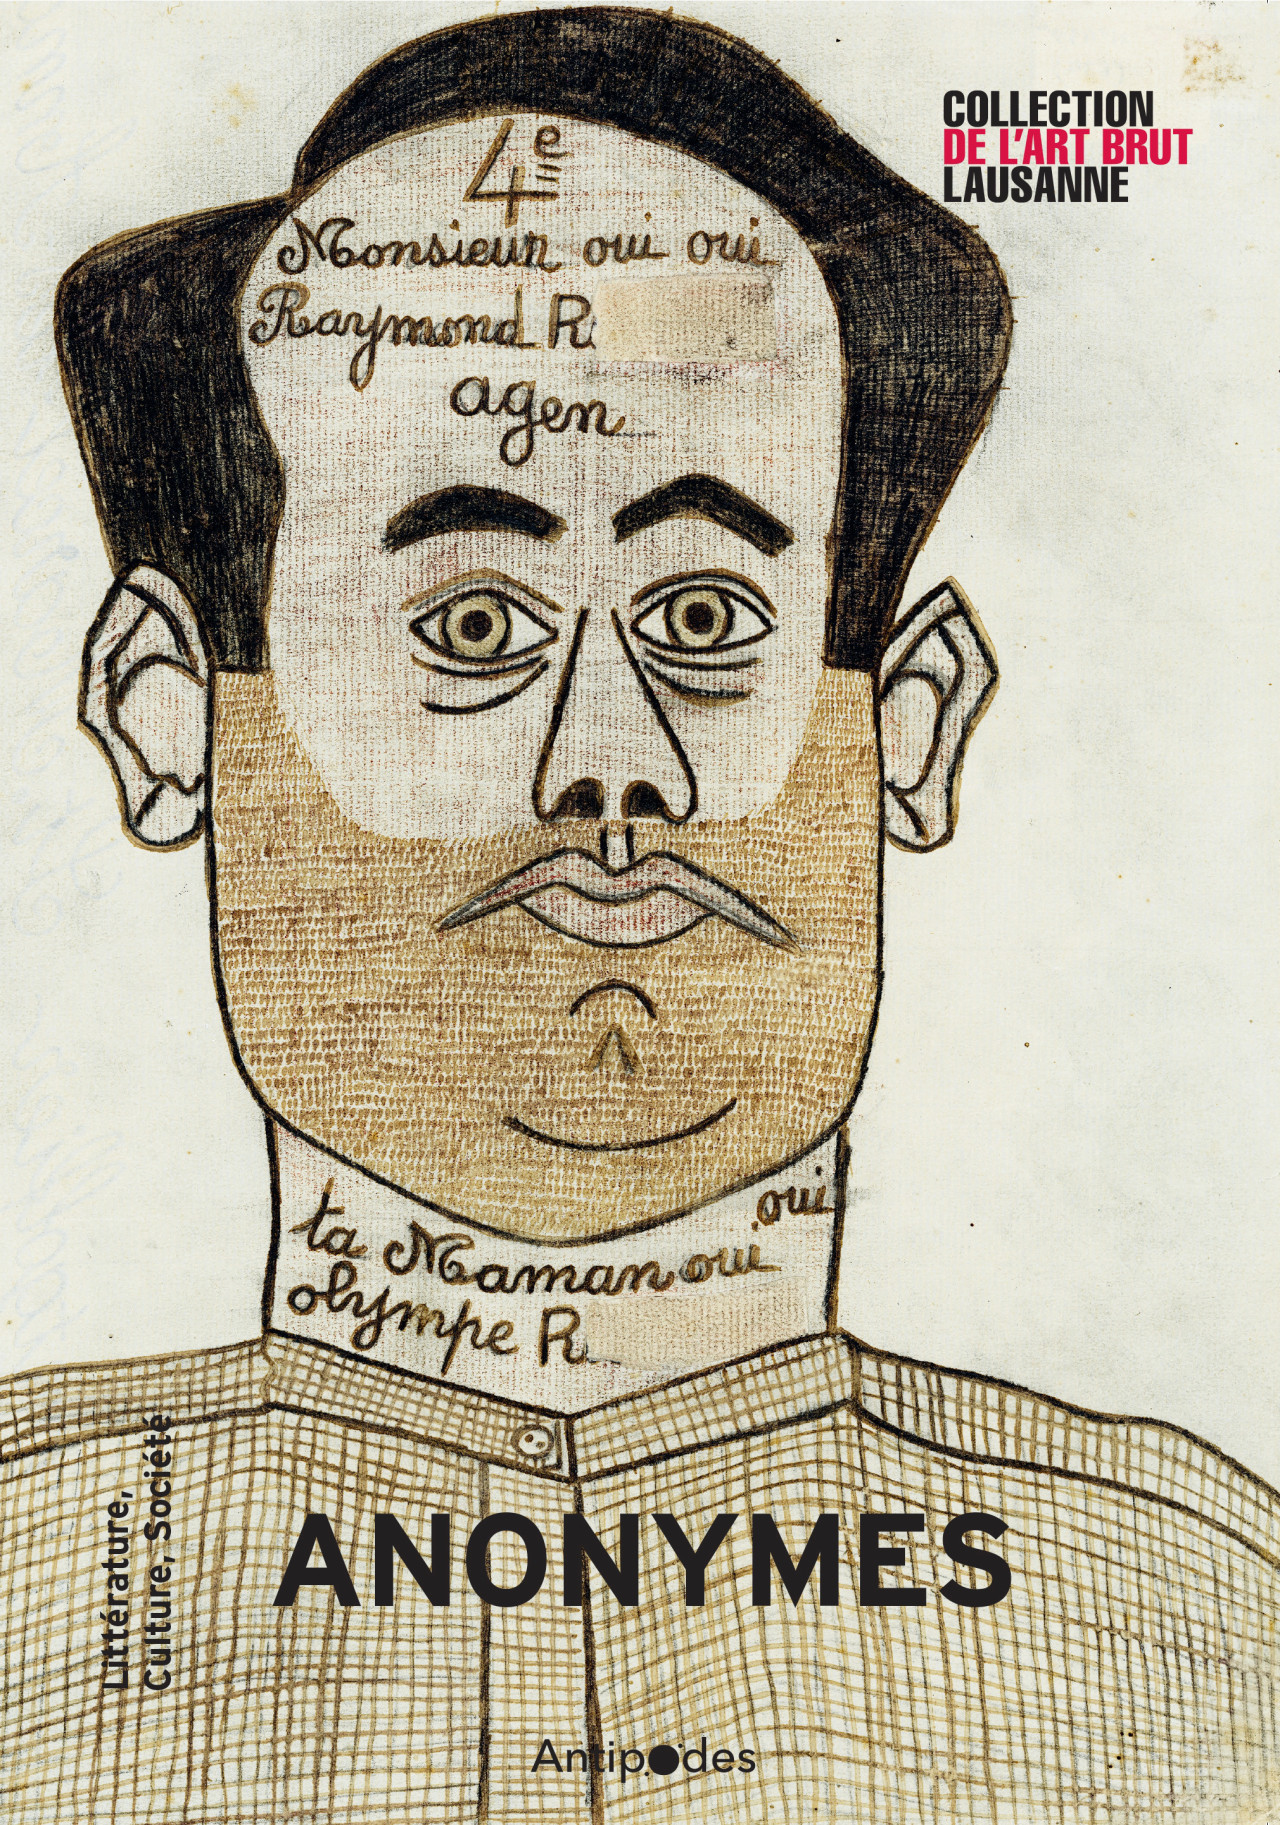 COLLECTION
DE L'ART BRUT
LAUSANNE
4e
Monsieur oui oui
Raymond R.
agen
ta Maman oui oui
olympe R.
Littérature,
Culture, Société
ANONYMES
Antipodes